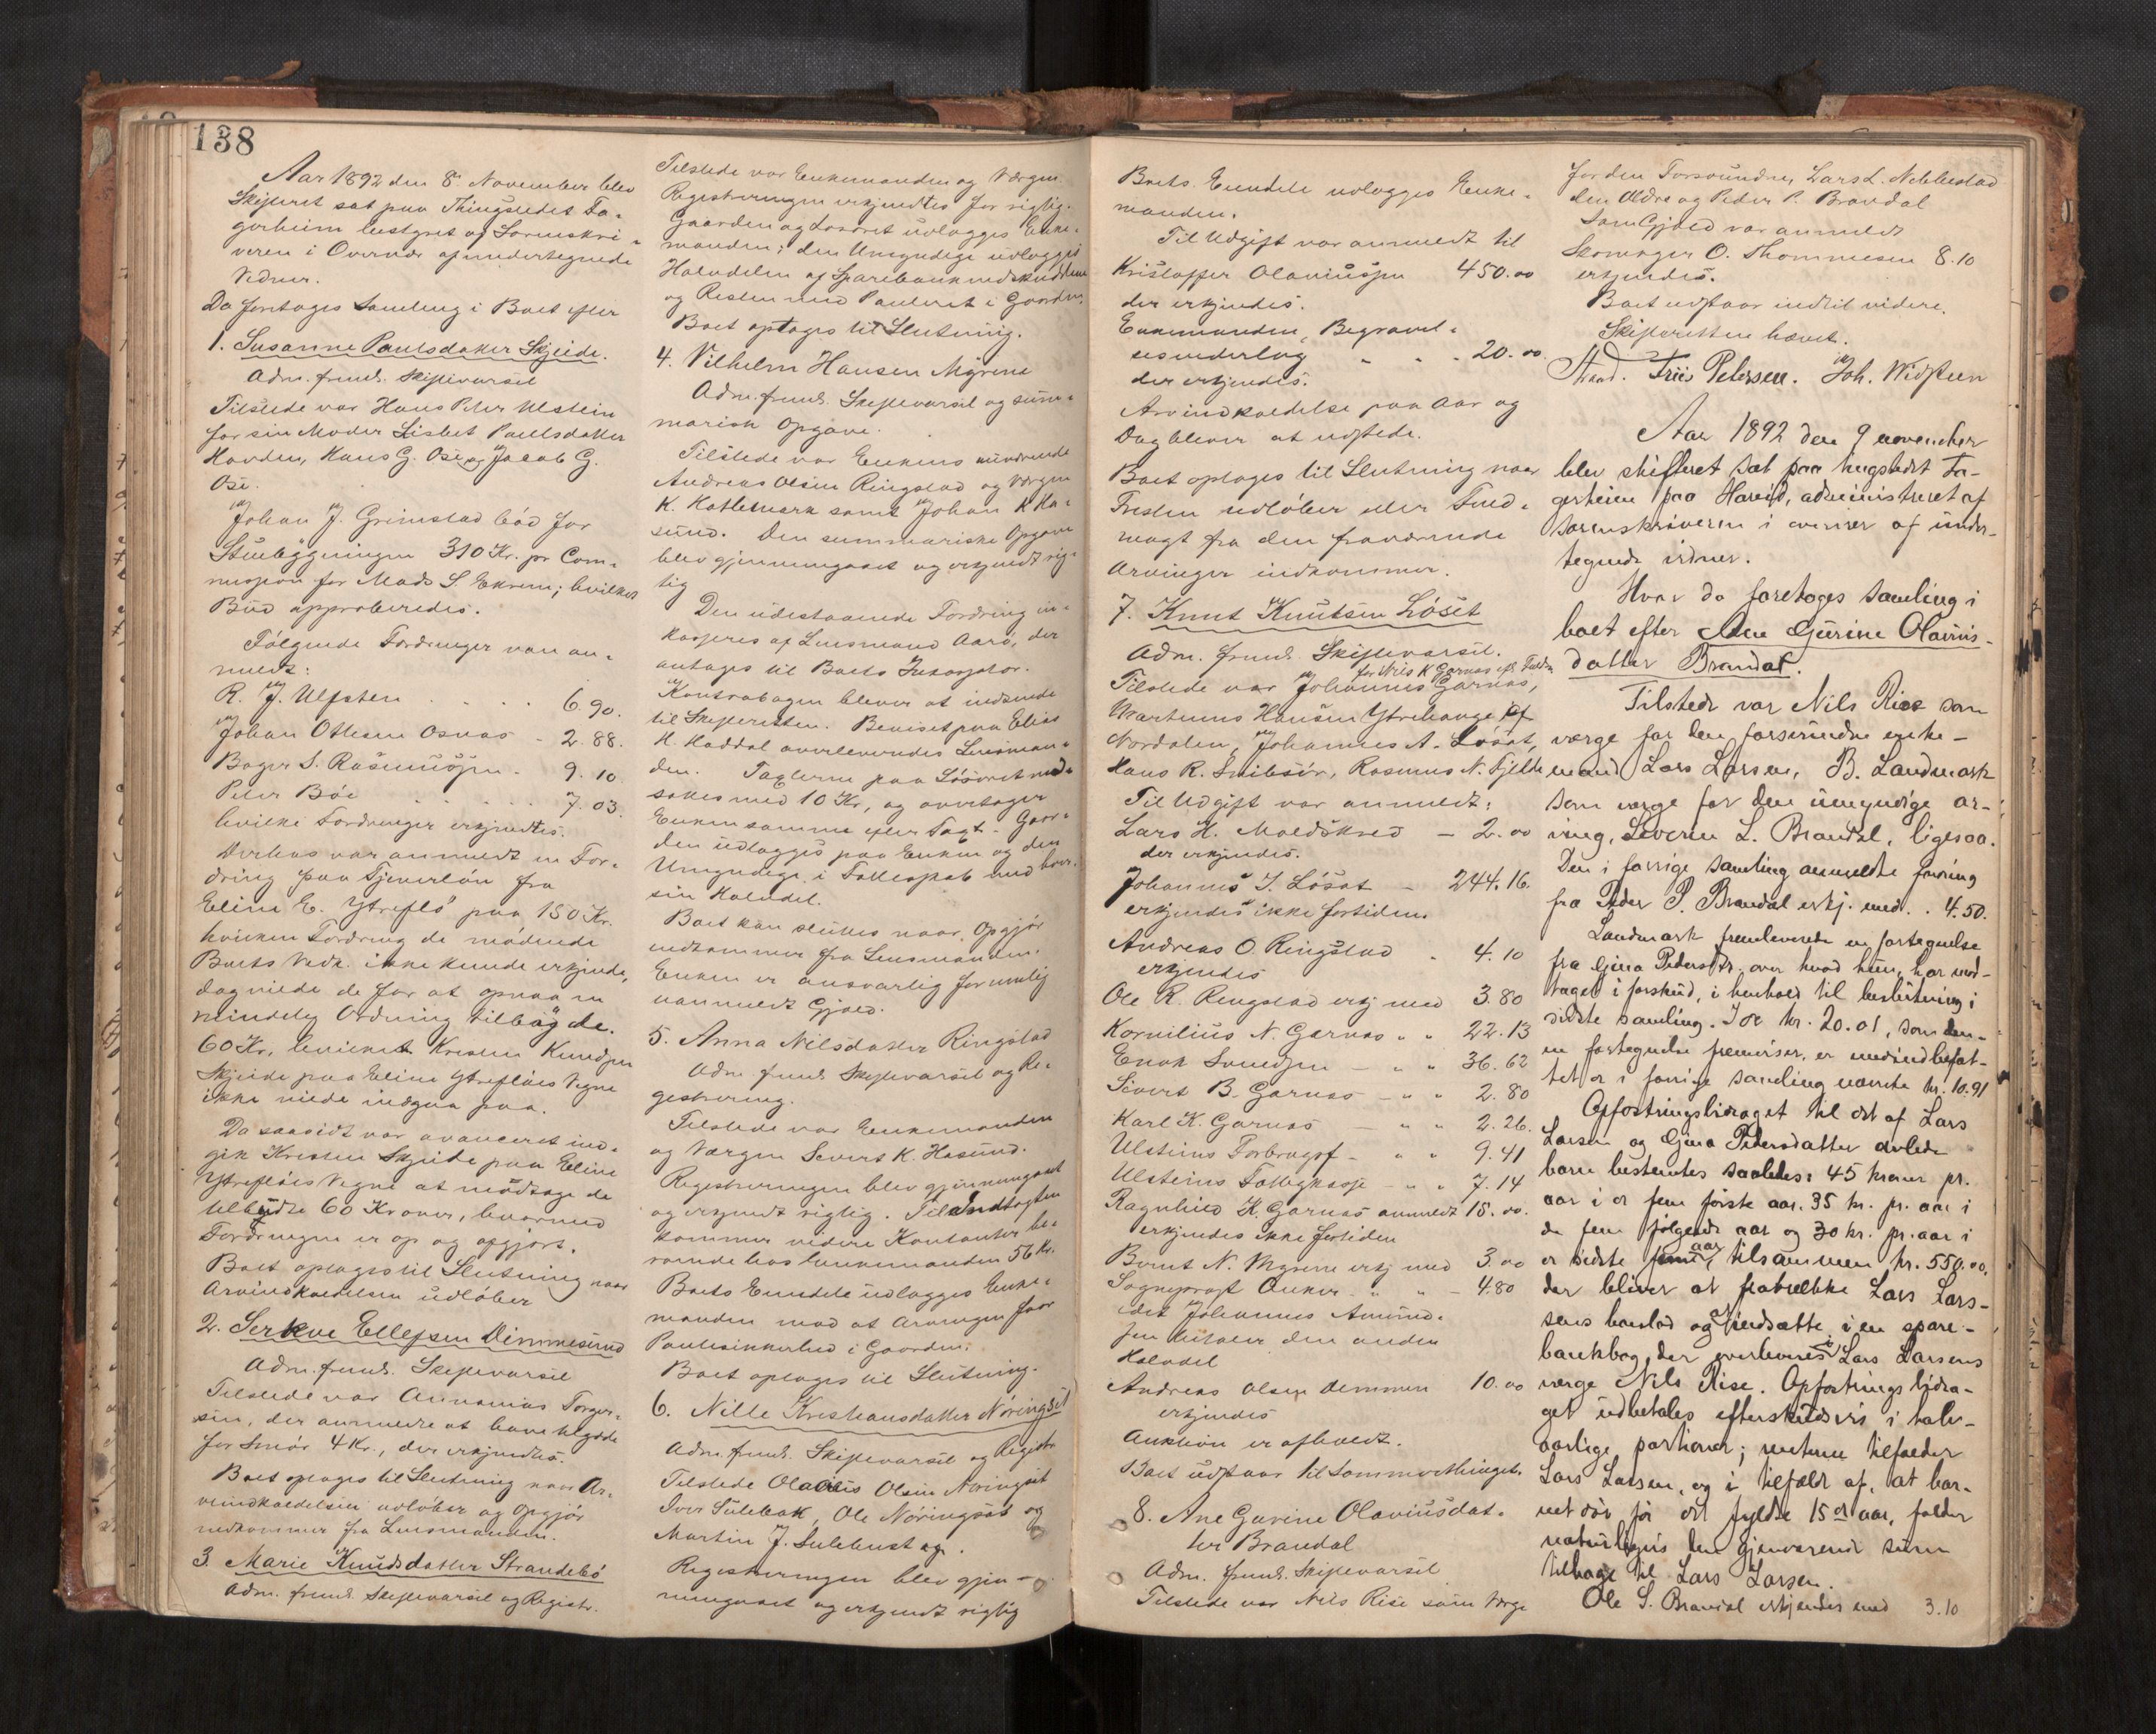 138
Aar 1892 den 8. November blev
Skifteret sat paa Thingstedet Fa-
gerheim bestyret af Sorenskri-
veren i Overvær af undertegnede
Vidner.
Da foretoges Samling i Boet efter
1. Susanne Paulsdatter Skjeide.
Adm. freml. Skiftevarsel
Tilstede var Hans Peter Ulstein
for sin Moder Lisbet Paulsdatter
Hovden, Hans G. Ose og Jacob G.
Ose.
Johan J. Grimstad bød for
Stuebygningen 310 Kr. pr Com-
mission for Mads S. Ekrem; hvilket
Bud approberedes.
Følgende Fordringer var an-
meldt:
R. J. Ulfsten . . . . 6.90.
Johan Ottesen Osnas - 2.88.
Bager S. Rasmussen . 9.10
Peter Böe . . . . . 7.03.
hvilke Fordringer erkjendtes.
Derhos var anmeldt en For-
dring paa Tjenerløn fra
Eline E. Ytreflö paa 150 Kr.
hvilken Fordring de mødende
Boets Vedk. ikke kunde erkjende,
dog vilde de for at opnaa en
mindelig Ordning tilbyde.
60 Kr., hvilket Kresten Knudsen
Skjeide paa Eline Ytreflöes Vegne
ikke vilde indgaa paa.
Da saavidt var avanceret ind-
gik Kresten Skjeide paa Eline
Ytreflöes Vegne at modtage de
tilbudte 60 Kroner, hvormed
Fordringen er op og afgjort.
Boet optages til Slutning naar
Arveindkaldelsen udløber
2. Serkve Ellefsen Dimmesund
Adm. freml. Skiftevarsel
Tilstede var Annanias Torger-
sen, der anmeldte at have tilgode
for Smör 4 Kr., der erkjendtes.
Boet optages til Slutning naar Ar-
veindkaldelsen udløber og Opgjör
indkommer fra Lensmanden.
3. Marie Knudsdatter Strandebö
Adm. freml. Skiftevarsel og Registr.
Tilstede var Enkemanden og Værgen.
Registreringen erkjendtes for rigtig.
Gaarden og Løsöret udlægges Enke-
manden; den Umyndige udlægges
Halvdelen af Sparebankindskuddene
og Resten med Panteret i Gaarden.
Boet optages til Slutning.
4. Vilhelm Hansen Myrene
Adm. freml. Skiftevarsel og sum-
marisk Opgave.
Tilstede var Enkens
Andreas Olsen Ringstad og Værgen
K. Hatlemark samt Johan K Ha-
sund. Den summariske Opgave
blev gjennemgaaet og erkjendt rig-
tig
Den udestaaende Fordring in-
kasseres af Lensmand Aarö, der
antages til Boets Inkassator.
Kontrabogen bliver at indsende
til Skifteretten. Beviset paa Elias
H. Haddal overleveredes Lensman-
den. Taxterne paa Løsöret ned-
sættes med 10 Kr, og overtager
Enken samme efter Taxt. Gaar-
den udlægges paa Enken og den
Umyndige i Fællesskab med hver
sin Halvdel.
Boet kan sluttes naar Opgjör
indkommer fra Lensmanden.
Enken er ansvarlig for mulig
uanmeldt Gjæld.
5. Anna Nilsdatter Ringstad
Adm. freml. Skiftevarsel og Re-
gistrering.
Tilstede var Enkemanden
og Værgen Severt K. Hasund.
Registreringen blev gjennemgaaet
og erkjendt rigtig. Til Indtægten
kommer videre Kontanter be-
roende hos Enkemanden 56 Kr.
Boets Eiendele udlægges Enke-
manden mod at Arvingen faar
Pantesikkerhed i Gaarden.
Boet optages til Slutning.
6. Nille Kristiansdatter Nöringset
Adm. freml. Skiftevarsel og Registr
Tilstede Olaus Olsen Nöringset
Iver Sulebak, Ole Nöringset og
Martin J. Sulebust og.
Registreringen blev gjen-
nemgaaet og erkjendt rigtig
Boets Eiendele udlægges Enke-
manden.
Til Udgift var anmeldt til
Kristoffer Olaviussen 450.00
der erkjendes.
Enkemanden, Begravel-
sesudlæg " " - 20.00.
der erkjendes.
Arveindkaldelse paa Aar og
Dag bliver at udstede.
Boet optages til Slutning naar
Fristen udløber eller Fuld-
magt fra den fraværende
Arvinger indkommer.
7. Knut Knutsen Löset
Adm. freml. Skiftevarsel.
for Nils K Garnæs efter Fuldm
Tilstede var Johannes Garnæs,
Martinus Hansen Ytrehauge af
Nordalen, Johannes A. Löset,
Hans R. Snibsör, Rasmus N. Fjelde
Til Udgift var anmeldt:
Lars H. Moldskred - 2.00
der erkjendes.
Johannes J. Löset - 244.16.
erkjendes ikke fortiden
Andreas O. Ringstad " 4.10
erkjendes
Ole R. Ringstad erkj med 3.80
Kornilius N. Garnes " " 22.13
Enok Svendsen - " " 36.62
Sivert B. Garnæs - " " 2.80
Karl K. Garnæs - " " 2.26.
Ulsteins Forbrugsf - " " 9.41
Ulsteins Fattigkasse - " " 7.14
Ragnhild K. Garnæs anmeldt 15.00.
erkjendes ikke fortiden
Bernt N. Myrene erkj med 3.00
Sogneprest Anker - " " - 4.80
idet Johannes Amund-
sen betaler den anden
Halvdel
Andreas Olsen Demmen 10.00
erkjendes
Auktion er afholdt.
Boet udstaar til Sommerthinget.
8. Ane Gurine Olaviusdat-
ter Brandal
Adm. freml. Skiftevarsel
Tilstede var Nils Rise som Værge
for den Forsvundne, Lars L. Nebbestad
den Ældre og Peder P. Brandal
Som Gjæld var anmeldt
Skomager O. Thommesen 8.10
erkjendes.
Boet udstaar indtil videre.
Skifteretten hævet.
Friis Petersen. Joh. Widsteen
Aar 1892 den 9 november
blev skifteret sat paa tingstedet Fa-
gerheim paa Hareid, administreret af
sorenskriveren i overvær af under-
tegnede vidner.
Hvor da foretoges samling i
boet efter Ane Gurine Olavius-
datter Brandal.
Tilstede var Nils Rise som
verge for den forsvundne enke-
mand Lars Larsen, B. Landmark
som verge for den umyndige ar-
ving, Severin L. Brandal, ligesaa.
Den i forrige samling anmeldte fordring
fra Peder P. Brandal erkj. med. . 4.50.
Landmark fremleverede en fortegnelse
fra Gina Pedersdtr. over hvad hun har mod-
taget i forskud, i henhold til beslutning i
sidste samling. I de kr. 20.01, som den-
ne fortegnelse fremviser, er medindbefat-
tet de i forrige samling nævnte kr. 10.91
Opfostringsbidraget til det af Lars
Larsen og Gina Pedersdatter avlede
barn bestemtes saaledes: 45 kroner pr.
aar i de fem første aar. 35 kr. pr. aar i
de fem følgende aar og 30 kr. pr. aar i
de sidste fem aar, tilsammen kr. 550.00,
der bliver at fratrække Lars Lars-
sens boeslod og indsætte i en spare-
bankbog, der overleveres Lars Larsens
verge Nils Rise. Opfostringsbidra-
get udbetales efterskudsvis i halv-
aarlige portioner; renterne tilfalder
Lars Larsen, og i tilfælde af, at bar-
net dør før det fyldte 15de aar, falder
naturligvis den gjenværende sum
tilbage til Lars Larsen.
Ole S. Brandal erkjendes med 3.10